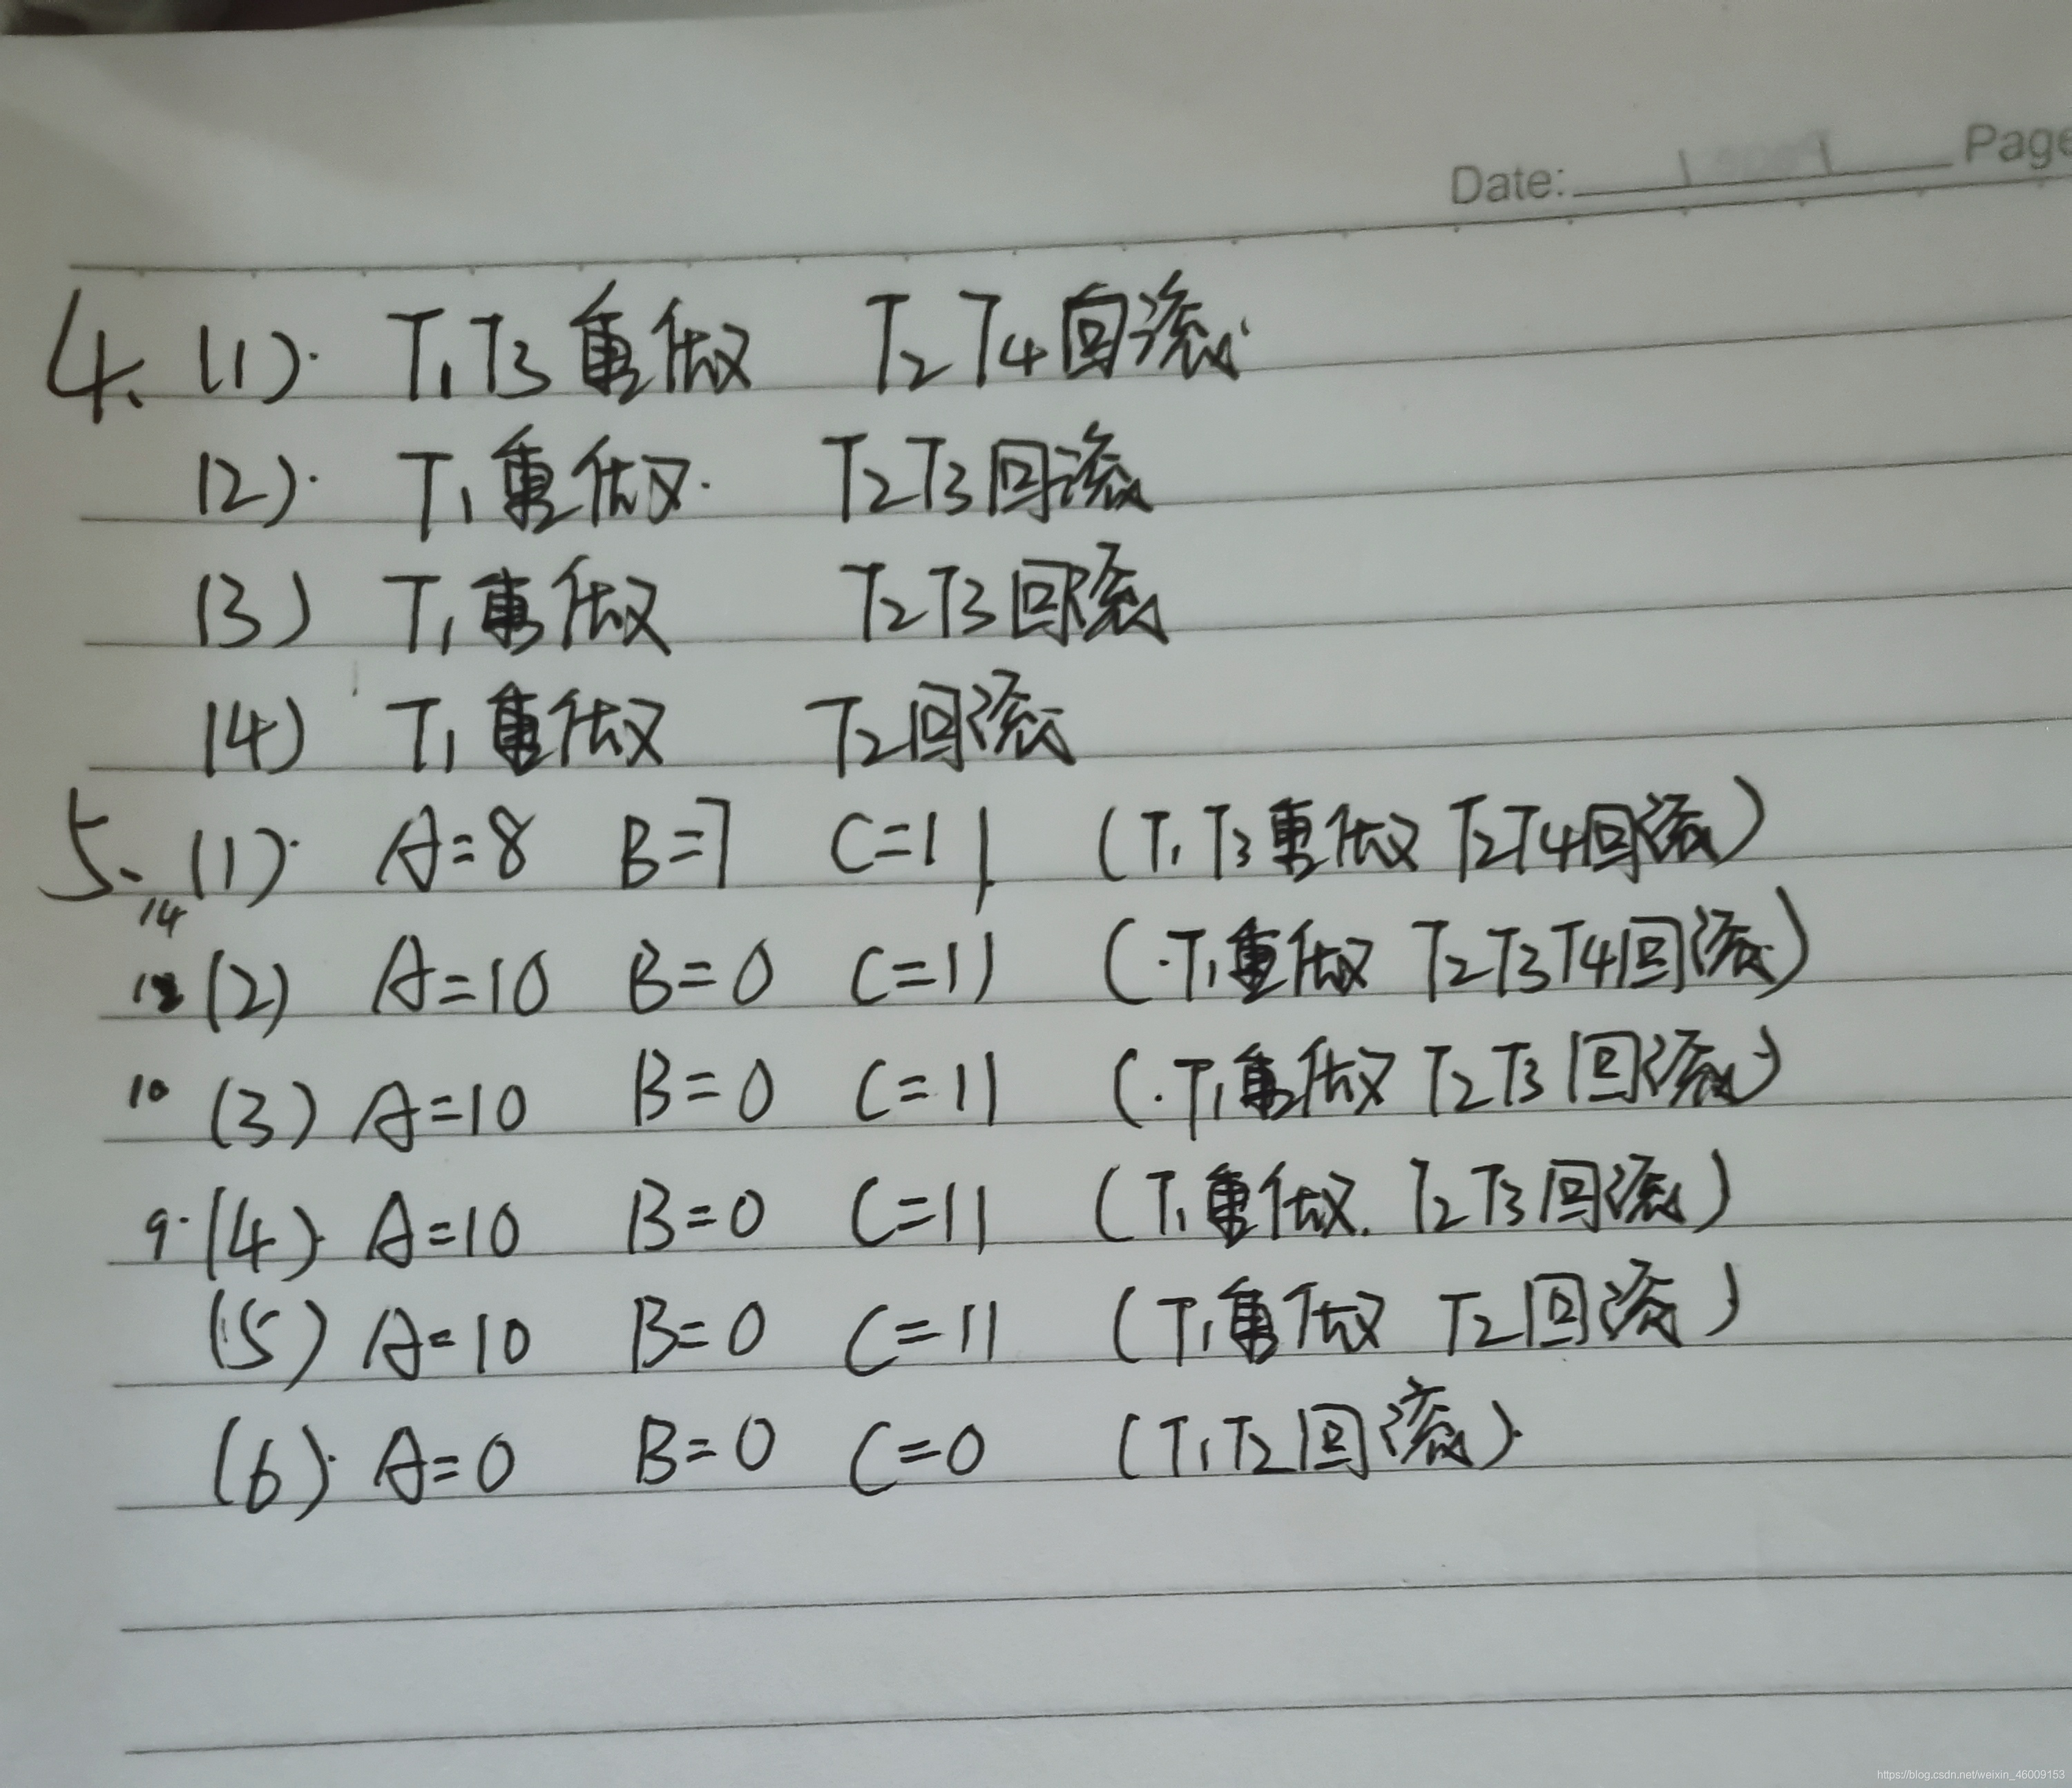 Date: Page
4. (1). T1T3重做 T2T4回流
(2). T1重做. T2T3回流
(3) T1重做 T2T3回流
(4) T1重做 T2回流
5. (1). A=8 B=7 C=11 (T1T3重做 T2T4回流)
14
(2) A=10 B=0 C=11 (.T1重做 T2T3T4回流)
10 (3) A=10 B=0 C=11 (.T1重做 T2T3回流)
9. (4). A=10 B=0 C=11 (T1重做. T2T3回流)
(5) A=10 B=0 C=11 (T1重做 T2回流)
(6). A=0 B=0 C=0 (T1T2回流).
https://blog.csdn.net/weixin_46009153